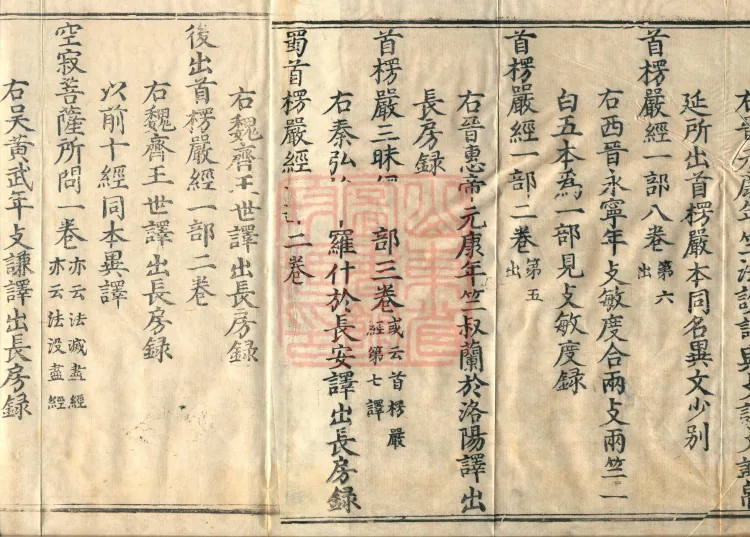 延所出首楞嚴本同名異文少別
首楞嚴經一部八卷第六出
右西晉永寧年支敏度合兩支兩竺一
白五本爲一部見支敏度録
首楞嚴經一部二卷第五出
右晉惠帝元康年竺叔蘭於洛陽譯出
長房録
首楞嚴三昧經部三卷或云首楞嚴經第七譯
右秦弘羅什於長安譯出長房録
蜀首楞嚴經二卷
右魏齊王世譯出長房録
後出首楞嚴經一部二卷
右魏齊王世譯出長房録
以前十經同本異譯
空寂菩薩所問一卷亦云法滅盡經亦云法没盡經
右吴黄武年支謙譯出長房録